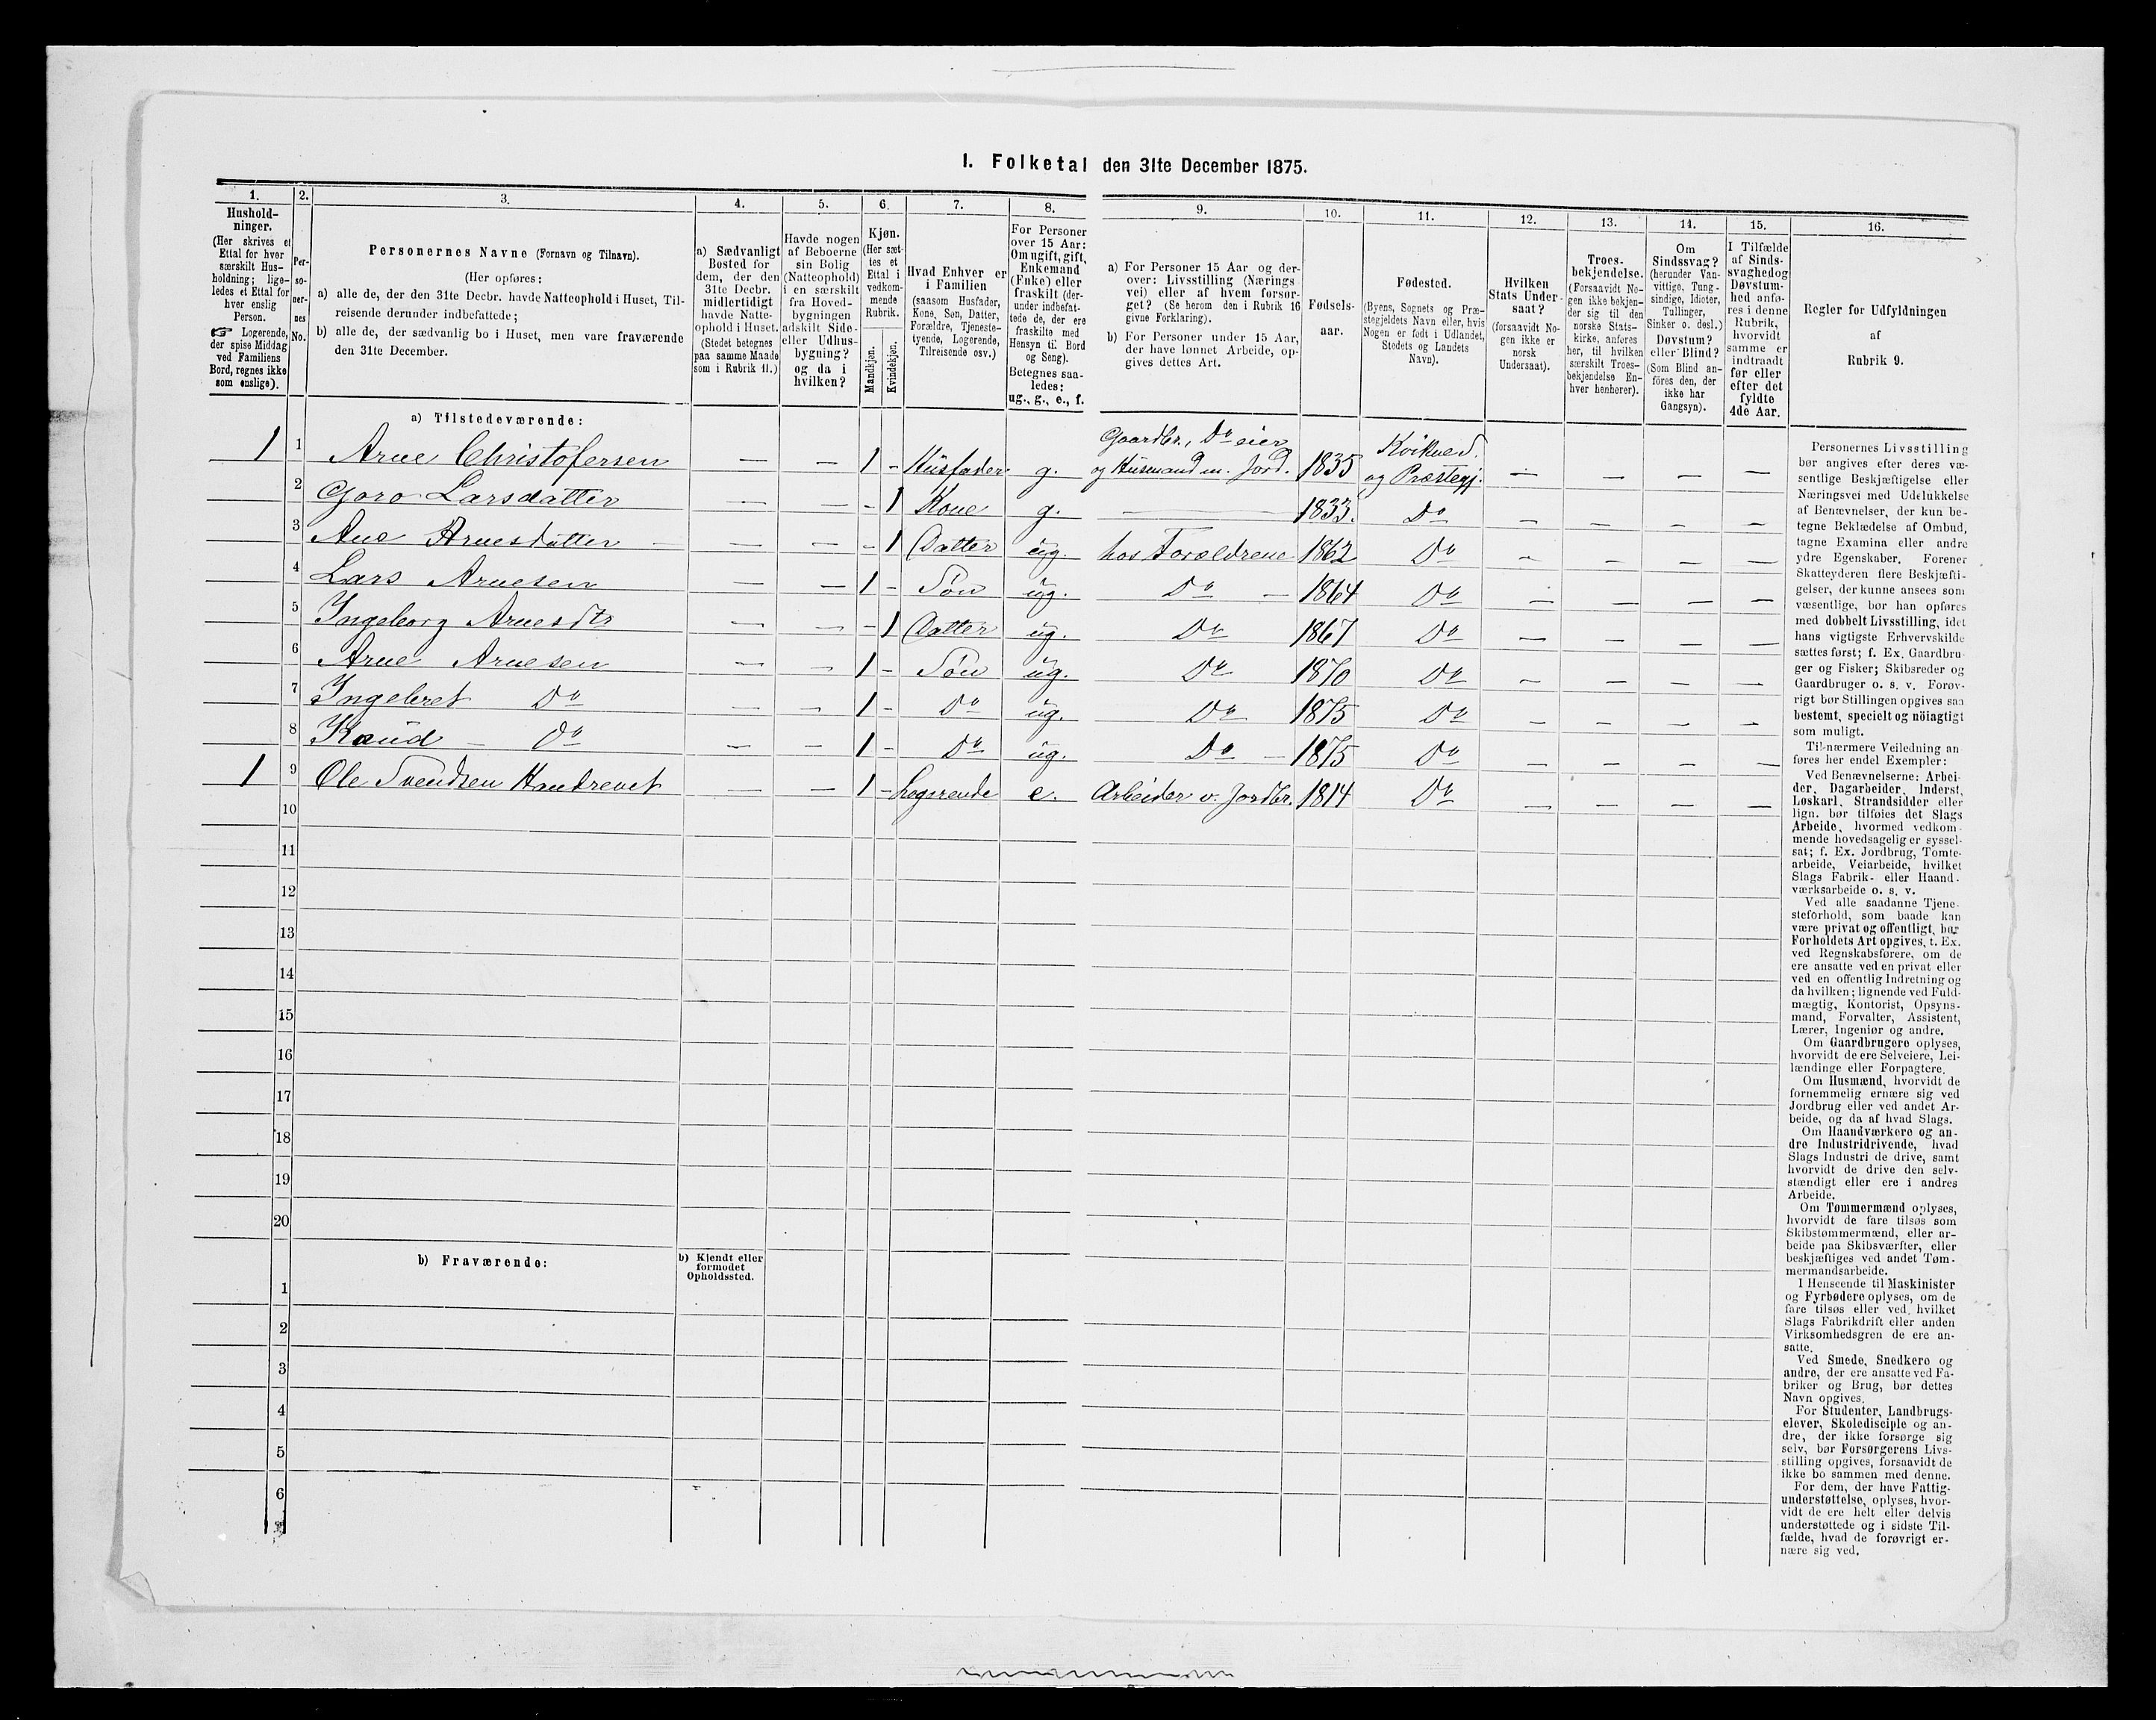 I. Folketal den 31te December 1875.
1. 2. 3. 4. 5. 6. 7. 8. 9. 10. 11. 12. 13. 14. 15. 16.
Hushold-
ninger.
(Her skrives et
Ettal for hver
særskilt Hus-
holdning; lige-
ledes et Ettal for
hver enslig
Person.
☞ Logerende,
der spise Middag
ved Familiens
Bord, regnes ikke
som enslige).
Per-
so-
ner-
nes
No.
Personernes Navne (Fornavn og Tilnavn).
(Her opføres:
a) alle de, der den 31te Decbr. havde Natteophold i Huset, Til-
reisende derunder indbefattede;
b) alle de, der sædvanlig bo i Huset, men vare fraværende
den 31te December.
a) Sædvanligt
Bosted for
dem, der den
31te Decbr.
midlertidigt
havde Natte-
ophold i Huset.
(Stedet betegnes
paa samme Maade
som i Rubrik 11.)
Havde nogen
af Beboerne
sin Bolig
(Natteophold)
i en særskilt
fra Hoved-
bygningen
adskilt Side-
eller Udhus-
bygning?
og da i
hvilken?
Kjøn.
(Her sæt-
tes et
Ettal i
vedkom-
mende
Rubrik.
Mandkjøn.
Kvindekjøn.
Hvad Enhver er
i Familien
(saasom Husfader,
Kone, Søn, Datter,
Forældre, Tjeneste-
tyende, Logerende,
Tilreisende osv.)
For Personer
over 15 Aar:
Om ugift, gift,
Enkemand
(Enke) eller
fraskilt (der-
under indbefat-
tede de, der ere
fraskilte med
Hensyn til Bord
og Seng).
Betegnes saa-
ledes:
ug., g., e., f.
a) For Personer 15 Aar og der-
over: Livsstilling (Nærings-
vei) eller af hvem forsør-
get? (Se herom den i Rubrik 16
givne Forklaring).
b) For Personer under 15 Aar,
der have lønnet Arbeide, op-
gives dettes Art.
Fødsels-
aar.
Fødested.
(Byens, Sognets og Præ-
stegjeldets Navn eller, hvis
Nogen er født i Udlandet,
Stedets og Landets
Navn).
Hvilken
Stats Under-
saat?
(forsaavidt No-
gen ikke er
norsk
Undersaat).
Troes-
bekjendelse.
(Forsaavidt No-
gen ikke bekjen-
der sig til den
norske Stats-
kirke, anføres
her, til hvilken
særskilt Troes-
bekjendelse En-
hver henhører).
Om
Sindssvag?
(herunder Van-
vittige, Tung-
sindige, Idioter,
Tullinger,
Sinker o. desl.)
Døvstum?
eller Blind?
(Som Blind an-
föres den, der
ikke har
Gangsyn).
I Tilfælde
af Sinds-
svaghed og
Døvstum-
hed anfø-
res i denne
Rubrik,
hvorvidt
samme er
indtraadt
før eller
efter det
fyldte
4de Aar.
Regler for Udfyldningen
af
Rubrik 9.
a) Tilstedeværende:
1 1 Arne Christofersen — — 1 - Husfader g. Gaardbr., Do eier og Husmand m. Jord. 1835 Kvikned. og Præstegj. — — — —
2 Goro Larsdatter — — - 1 Kone g. — 1833. Do — — — —
3 Ane Arnesdatter — — - 1 Datter ug. hos Forældrene 1862 Do — — — —
4 Lars Arnesen — — 1 - Søn ug. Do — 1864 Do — — — —
5 Ingeborg Arnesdtr — — - 1 Datter ug. Do 1867 Do — — — —
6 Arne Arnesen — — 1 - Søn ug. Do 1870 Do — — — —
7 Ingebret Do — — 1 - Do ug. Do 1875 Do — — — —
8 Knud — Do — — 1 - Do ug. Do — 1875 Do — — — —
1 9 Ole Svendsen — — 1 - Logerende e. Arbeider v. Jordbr. 1814 Do — — — —
10
11
12
13
14
15
16
17
18
19
20
b) Fraværende:
b) Kjendt eller
formodet
Opholdssted.
1
2
3
4
5
6
Personernes Livsstilling
bør angives efter deres væ-
sentlige Beskjæftigelse eller
Næringsvei med Udelukkelse
af Benævnelser, der kun be-
tegne Beklædelse af Ombud,
tagne Examina eller andre
ydre Egenskaber. Forener
Skatteyderen flere Beskjæfti-
gelser, der kunne ansees som
væsentlige, bør han opføres
med dobbelt Livsstilling, idet
hans vigtigste Erhvervskilde
sættes først; f. Ex. Gaardbru-
ger og Fisker; Skibsreder og
Gaardbruger o. s. v. Forøv-
rigt bør Stillingen opgives saa
bestemt, specielt og nöiagtigt
som muligt.
Til nærmere Veiledning an-
føres her endel Exempler:
Ved Benævnelserne: Arbei-
der, Dagarbeider, Inderst,
Løskarl, Strandsidder eller
lign. bør tilføies det Slags
Arbeide, hvormed vedkom-
mende hovedsagelig er syssel-
sat; f. Ex. Jordbrug, Tomte-
arbeide, Veiarbeide, hvilket
Slags Fabrik- eller Haand-
værksarbeide o. s. v.
Ved alle saadanne Tjene-
steforhold, som baade kan
være privat og offentligt, bør
Forholdets Art opgives, t. Ex.
ved Regnskabsførere, om de
ere ansatte ved en privat eller
ved en offentlig Indretning og
da hvilken; lignende ved Fuld-
mægtig, Kontorist, Opsyns-
mand, Forvalter, Assistent,
Lærer, Ingeniør og andre.
Om Gaardbrugere oplyses,
hvorvidt de ere Selveiere, Lei-
lændinge eller Forpagtere.
Om Husmænd, hvorvidt de
fornemmelig ernære sig ved
Jordbrug eller ved andet Ar-
beide, og da af hvad Slags.
Om Haandværkere og an-
dre Industridrivende, hvad
Slags Industri de drive, samt
hvorvidt de drive den selv-
stændigt eller ere i andres
Arbeide.
Om Tømmermænd oplyses,
hvorvidt de fare tilsøs som
Skibstømmermænd, eller ar-
beide paa Skibsværfter, eller
beskjæftiges ved andet Tøm-
mermandsarbeide.
I Henseende til Maskinister
og Fyrbødere oplyses, om de
fare tilsøs eller ved hvilket
Slags Fabrikdrift eller anden
Virksomhedsgren de ere an-
satte.
Ved Smede, Snedkere og
andre, der ere ansatte ved Fa-
briker og Brug, bør dettes
Navn opgives.
For Studenter, Landbrugs-
elever, Skoledisciple og an-
dre, der ikke forsørge sig
selv, bør Forsørgerens Livs-
stilling opgives, forsaavidt de
ikke bo sammen med denne.
For dem, der have Fattig-
understøttelse, oplyses, hvor-
vidt de ere helt eller delvis
understøttede og i sidste Til-
fælde, hvad de forøvrigt er-
nære sig ved.